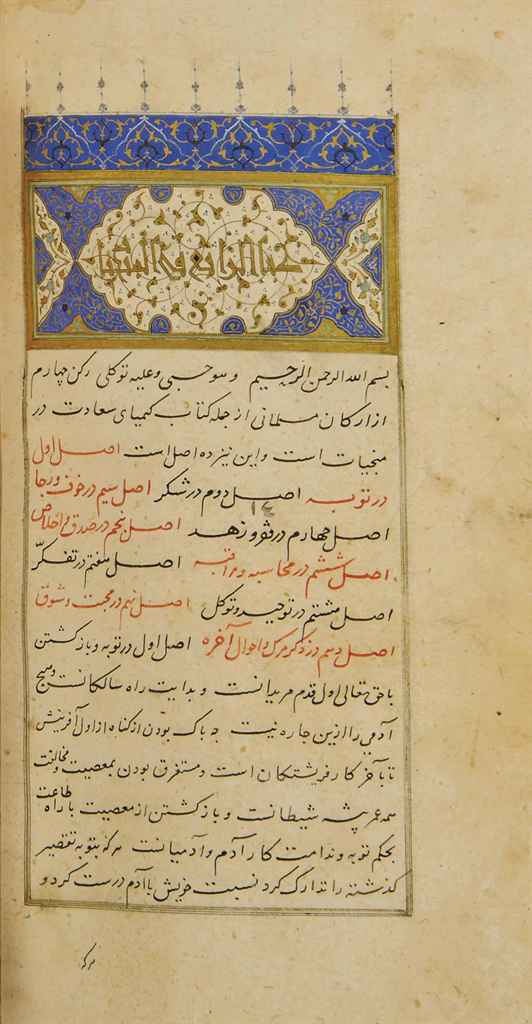 هذا الرابع فی المنجیات
بسم الله الرحمن الرحیم و هو حسبی و علیه توکلی رکن چهارم
از ارکان مسلمانی از جمله کتاب کیمیای سعادت در
منجیات است و این نیز ده اصل است اصل اول
در توبه اصل دوم در شکر اصل سیم در خوف و رجا
اصل چهارم در فقر و زهد اصل پنجم در صدق و اخلاص
اصل ششم در محاسبه و مراقبه اصل هفتم در تفکر
اصل هشتم در توحید و توکل اصل نهم در محبت و شوق
اصل دهم در ذکر مرک و احوال آخره اصل اول در توبه و باز کشتن
با حق تعالی اول قدم مریدانست و بدایت راه سالکانست و هیچ
آدمی را ازین چاره نیست چه باک بودن از کناه از اول آفرینش
تا بآخر کار فریشتکان است و مستغرق بودن بمعصیت و مخالفت
همه عمر پیشه شیطانست و باز کشتن از معصیت با راه طاعت
بحکم توبه و ندامت کار آدم و آدمیانست هر که بتوبه تقصیر
کذشته را تدارک کرد نسبت خویش با آدم درست کرد و
هر که